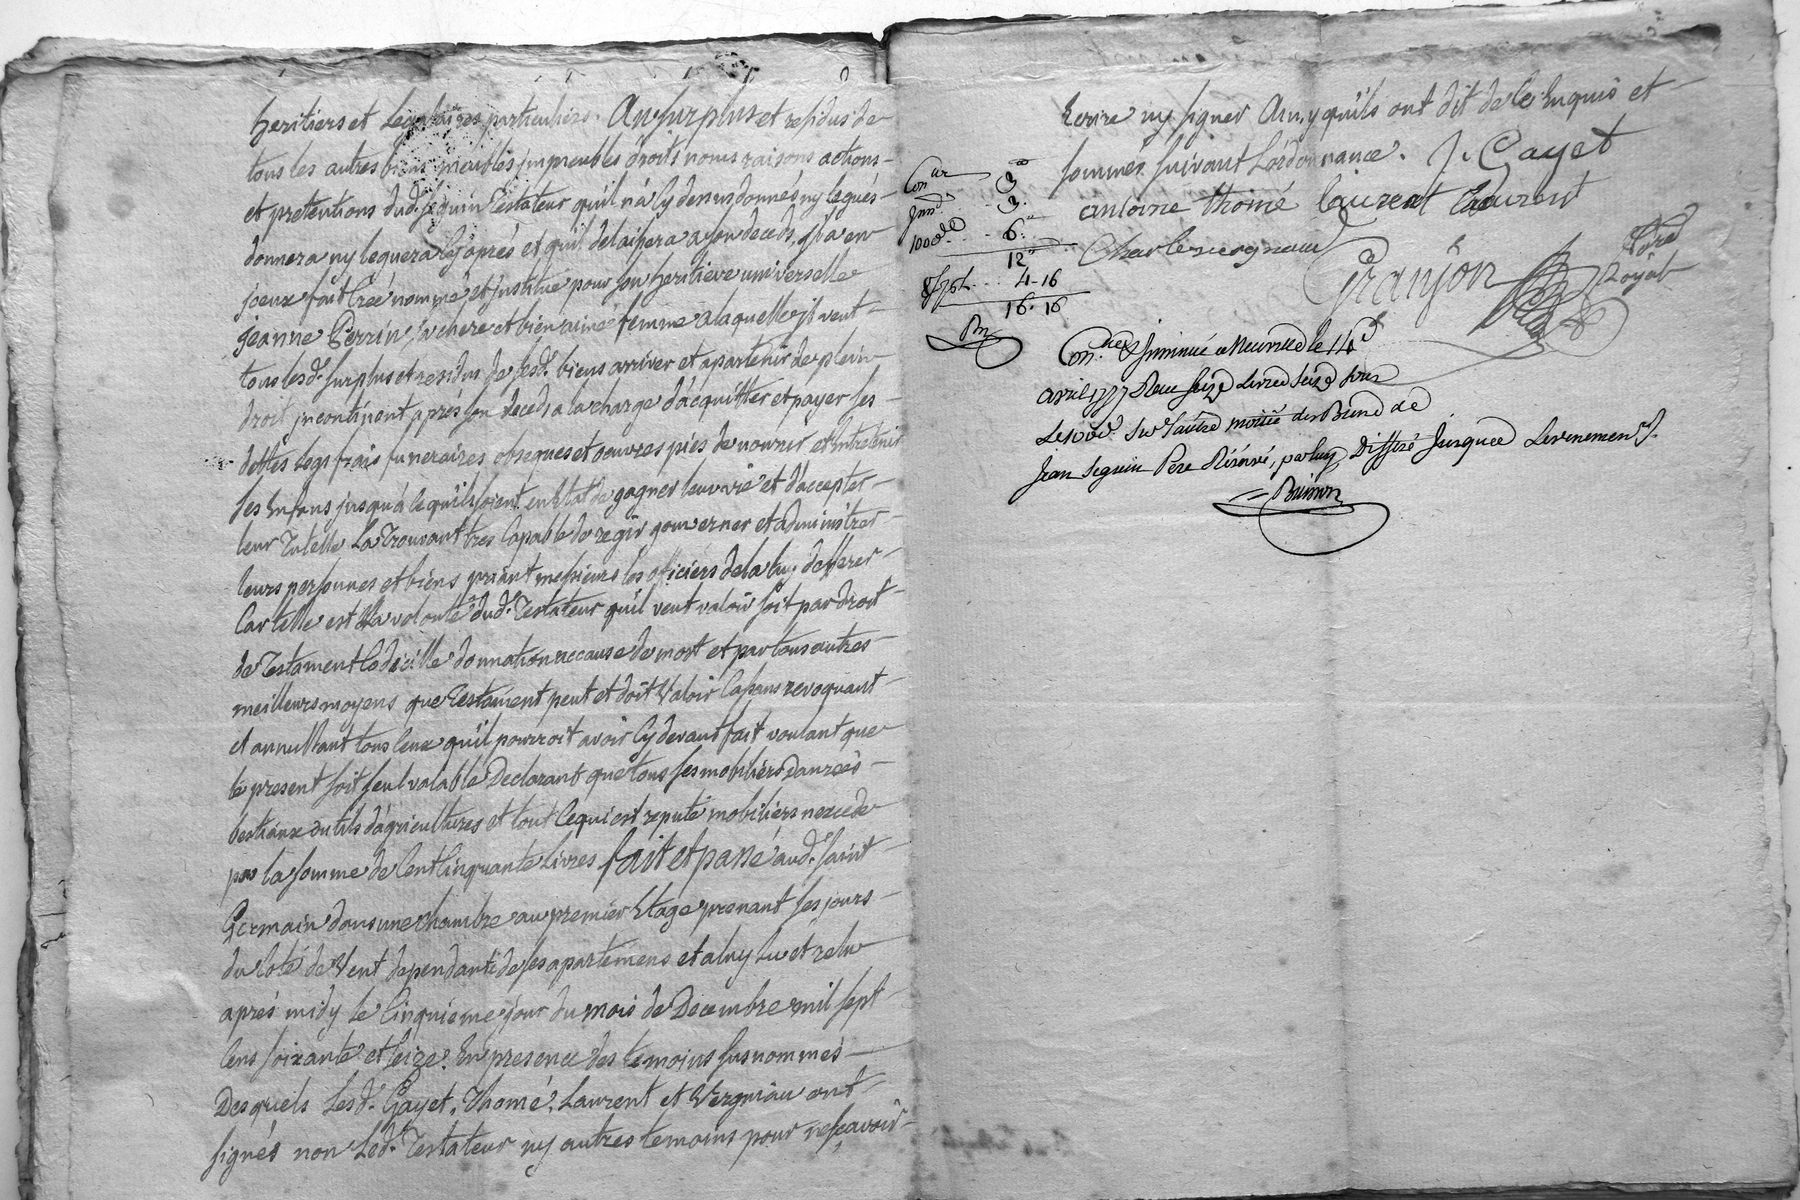 heritiers et Legataires particuliers. Au surplus et residus de
tous les autres biens meubles immeubles droits noms raisons actions
et pretentions dud. Seguin Testateur quil n'a cy dessus donnés ny legués
donnera ny leguera cy après et quil delaissera a son deceds, il a en
iceux fait Créé nommé et institué pour son heritiere universelle
Jeanne Perrin, sa chere et bien aimé femme a laquelle il veut
tous lesd. surplus et residus de sesd. biens arriver et apartenir de plein
droit incontinent après son deceds, a la charge d'acquitter et payer ses
dettes legs frais funeraires obseques et oeuvres pies de nourrir et Entretenir
ses Enfans jusqua ce quils soient en Etat de gagner leur vie et d'accepter
leur Tutelle La Trouvant tres Capable de regir gouverner et administrer
leurs personnes et biens priant messieurs les officiers de la luy defferer
Car telle est la volonté dud. Testateur quil veut valoir soit par droit
de Testament Codicille donnation a cause de mort et par tous autres
meilleurs moyens que Testament peut et doit Valoir Cassant revoquant
et annullant tous ceux quil pourroit avoir Cy devant fait voulant que
le present soit seul valable Declarant que tous ses mobiliers Danrées
bestiaux outils d'agricultures et tout Ce qui est reputé mobiliers n'excede
pas la somme de Cent Cinquante Livres fait et passé aud. Saint
Germain dans une Chambre au premier Etage prenant ses jours
du Coté de Vent dependante de ses apartemens et a luy Lu et relu
après midy le Cinquieme jour du mois de Decembre mil sept
Cens soixante et seize. En presence des temoins susnommés
Desquels Lesd. Gayet, Thomé, Laurent et Vergniau ont
signés non Led. Testateur ny autres temoins pour ne sçavoir
Ecrire ny signer Ainsy quils ont dit de ce Enquis et
sommés suivant Lordonnance. J. Gayet
antoine thomé laurent Laurent
Charle
Granjon
Nre
Royal
Con ar 3
Jnn 3.
100d 6
12
8s pl 4-16
16.16
Bn
Con. & Jnsinué a Neuville le 14
avril 1777 Receu Seize Livres Seize sous
Le 100d. Sur l'autre moitié des Biens de
Jean Seguin Pere Réservé, par luy Differé Jusques Levenement
Buisson